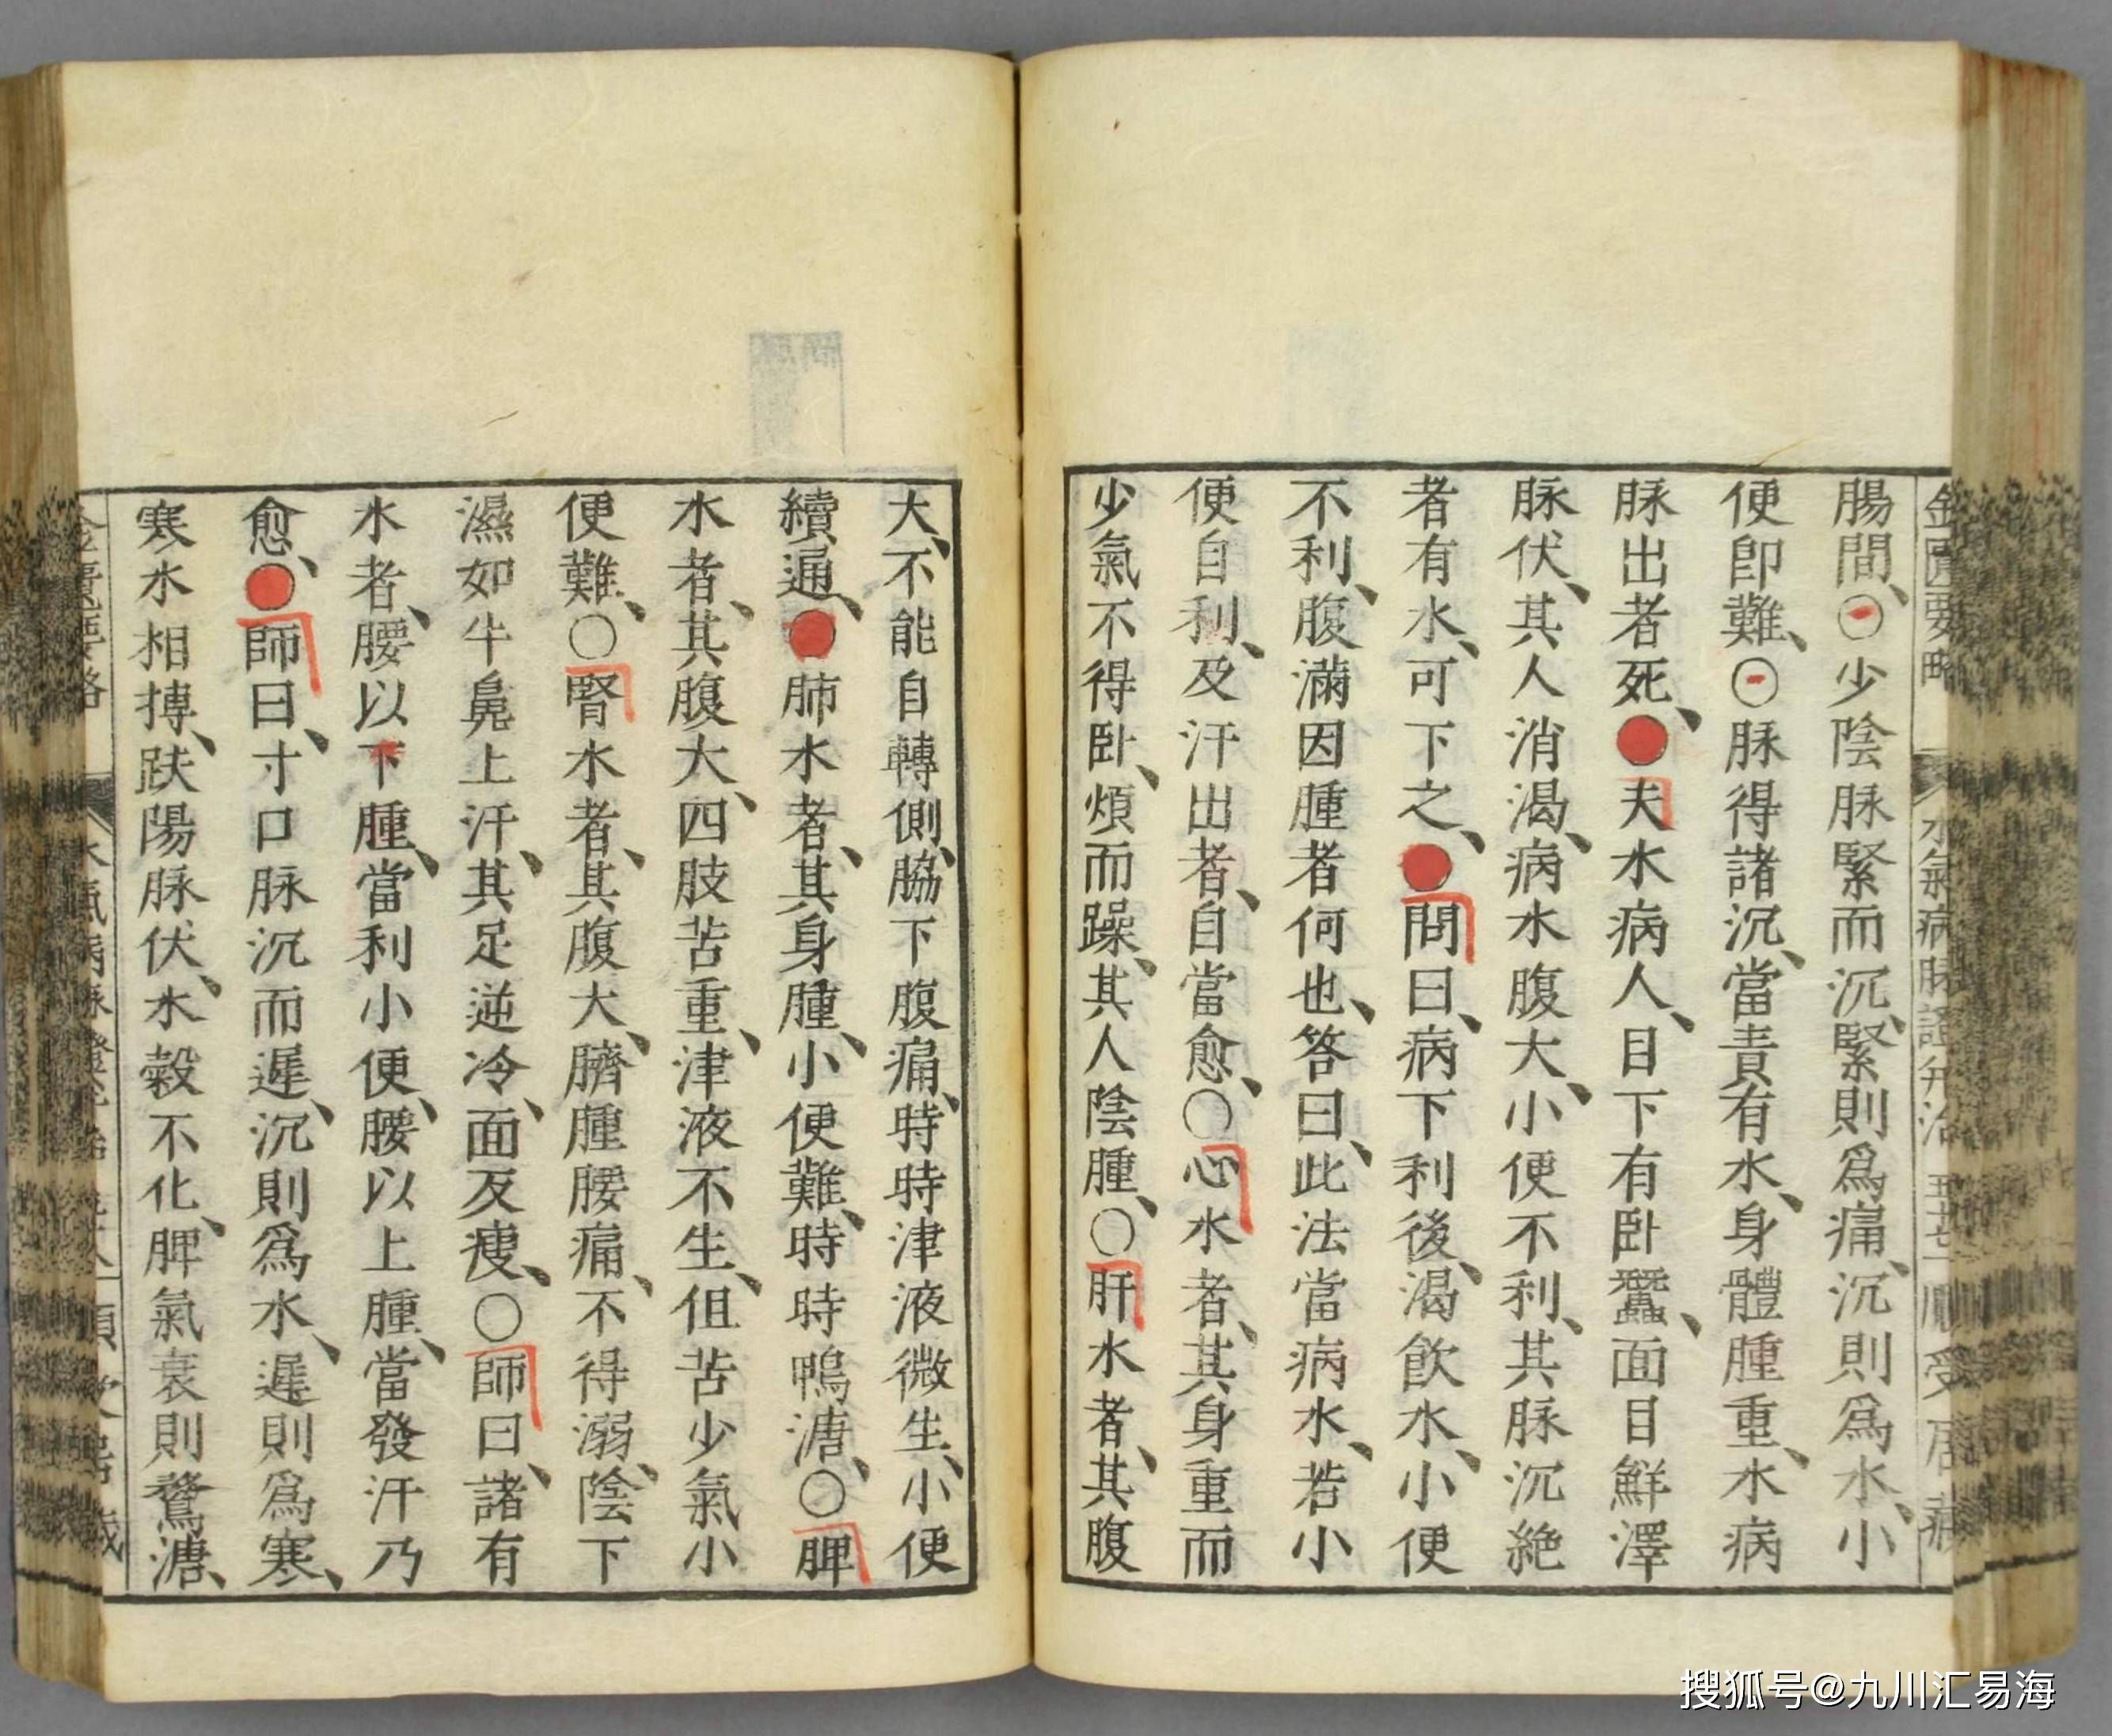 金匱要略 水氣病脉證弁治 五十七
腸間、○少陰脉緊而沉、緊則爲痛、沉則爲水、小
便卽難、○脉得諸沉、當責有水、身體腫重、水病
脉出者死、●夫水病人、目下有卧蠶、面目鮮澤
脉伏、其人消渴、病水腹大、小便不利、其脉沉絶
者有水、可下之、●問曰、病下利後、渴飮水、小便
不利、腹滿因腫者何也、答曰、此法當病水、若小
便自利、及汗出者、自當愈、○心水者、其身重而
少氣不得卧、煩而躁、其人陰腫、○肝水者、其腹
大、不能自轉側、脇下腹痛、時時津液微生、小便
續通、●肺水者、其身腫、小便難、時時鴨溏、○脾
水者、其腹大、四肢苦重、津液不生、但苦少氣小
便難、○腎水者、其腹大、臍腫腰痛、不得溺、陰下
濕如牛鼻上汗、其足逆冷、面反瘦、○師曰、諸有
水者、腰以下腫、當利小便、腰以上腫、當發汗乃
愈、●師曰、寸口脉沉而遲、沉則爲水、遲則爲寒、
寒水相摶、趺陽脉伏、水穀不化、脾氣衰則鶩溏、
搜狐号@九川汇易海